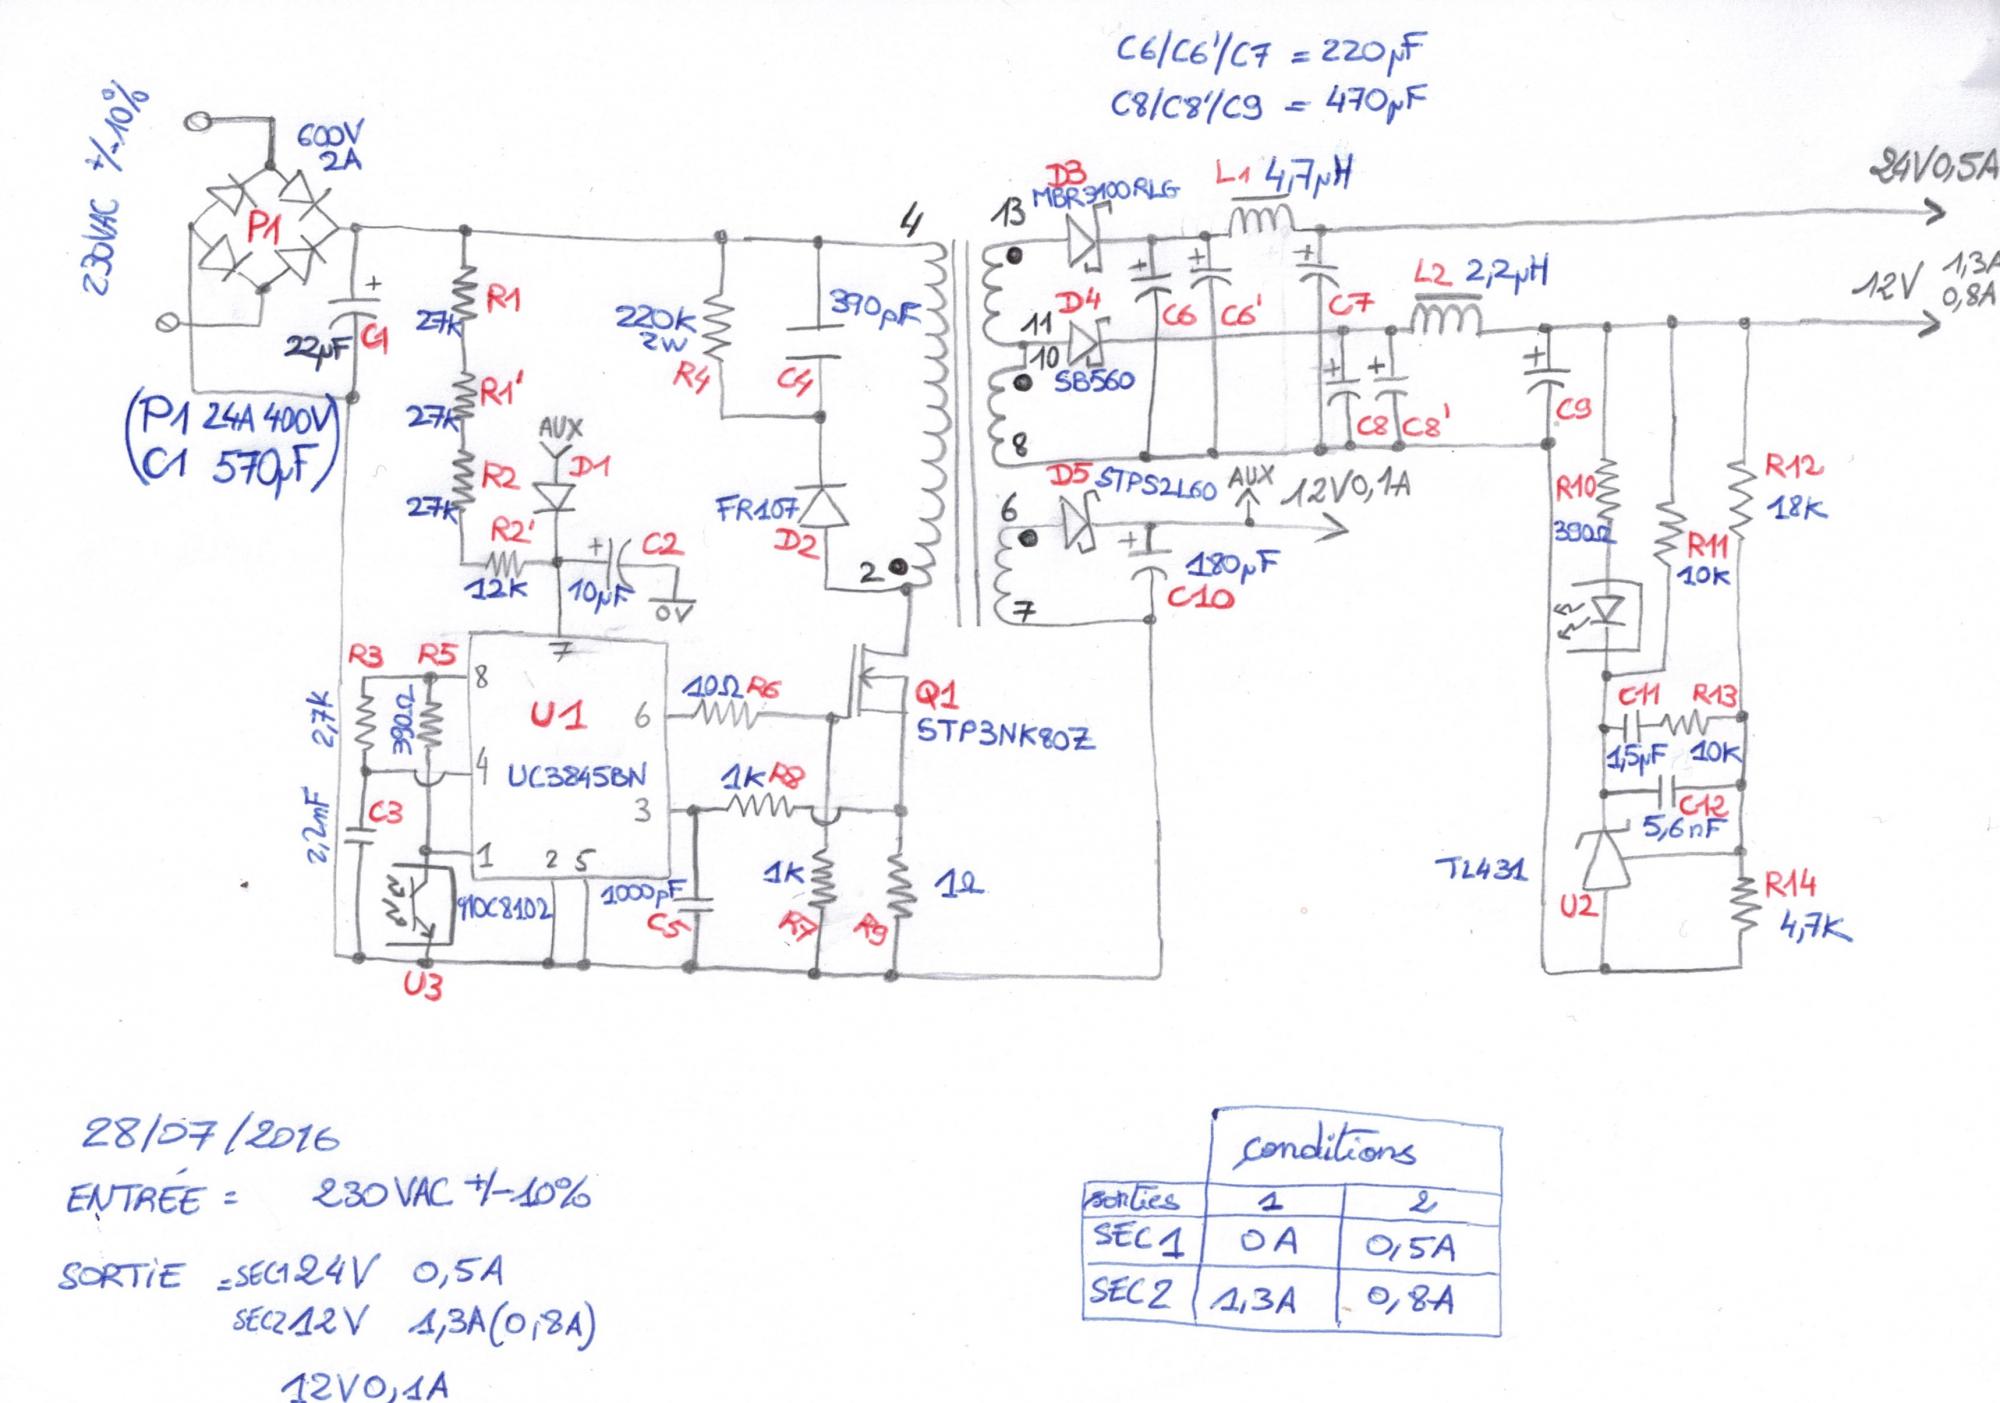 C6/C6'/C7 = 220µF
C8/C8'/C9 = 470µF
230VAC +/-10%
600V
2A
P1
22µF
C1
(P1 2A 400V)
(C1 570µF)
R1
27K
R1'
27K
R2
27K
R2'
12K
AUX
D1
C2
10µF
0V
220K
2W
R4
390pF
C4
FR107
D2
4
2
13
11
10
8
6
7
D3
MBR3100RLG
L1 4,7µH
24V0,5A
D4
SB560
C6
C6'
C7
L2 2,2µH
12V
1,3A
0,8A
C8
C8'
C9
D5
STPS2L60
AUX
12V0,1A
180µF
C10
R3
2,7K
R5
390Ω
2,2nF
C3
8
4
1
7
6
3
2
5
U1
UC3845BN
MOC8102
U3
10Ω
R6
Q1
STP3NK80Z
1K
R8
1000pF
C5
1K
R7
R9
1Ω
R10
390Ω
R11
10K
R12
18K
C11
R13
1,5µF
10K
C12
5,6nF
TL431
U2
R14
4,7K
28/07/2016
ENTRÉE = 230VAC +/-10%
SORTIE = SEC1 24V 0,5A
SEC2 12V 1,3A(0,8A)
12V0,1A
conditions
sorties 1 2
SEC1 0A 0,5A
SEC2 1,3A 0,8A